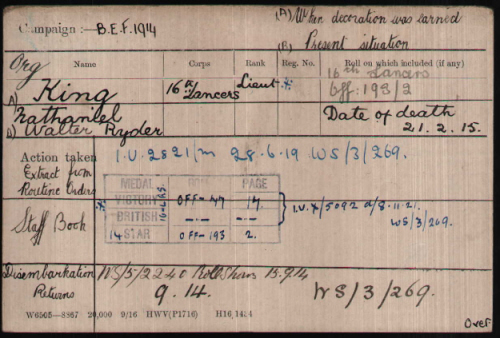 Campaign :— B.E.F. 1914
(A) When decoration was earned
(B) Present situation
Org
Name Corps Rank Reg. No. Roll on which included (if any)
A) King 16th Lancers Lieut * 16th Lancers
Off: 193/2
Nathaniel
B) Walter Ryder
Date of death
21. 2. 15.
Action taken I.V. 2821/m 28.6.19 WS/3/269.
Extract from
Routine Orders
MEDAL PAGE
VICTORY OFF-47 17.
BRITISH —"— —"—
14 STAR OFF-193 2.
16-L RS.
Staff Book
I.V.X/5092 d/8.11.21.
WS/3/269.
Disembarkation WS/5/2240
Returns 9.14. WS/3/269.
W6505—8867 20,000 9/16 HWV(P1716) H16/1424
Over